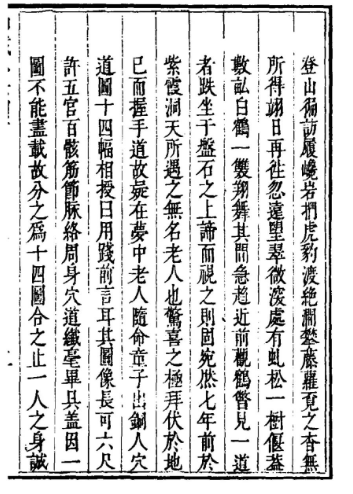 登山徧訪履巉岩捫虎豹渡絕澗攀藤蘿覓之杳無
所得翊日再徃忽遠望翠微深處有虬松一樹偃葢
數畝白鶴一雙翔舞其間急趋近前觀鶴瞥見一道
者趺坐于盤石之上諦而視之則固宛然七年前於
紫霞洞天所遇之無名老人也驚喜之極拜伏於地
已而握手道故疑在夢中老人隨命童子出銅人穴
道圖十四幅相授曰用踐前言耳其圖像長可六尺
許五官百骸筋節脉絡周身穴道纎毫畢具盖因一
圖不能盡載故分之爲十四圖合之止一人之身誠